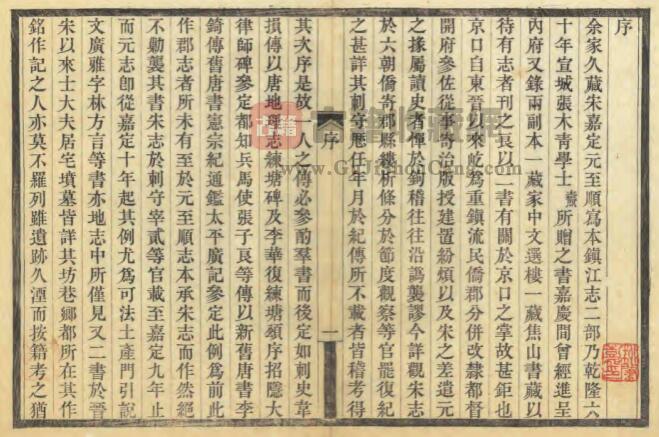 序
余家久藏朱嘉定元至順寫本鎮江志二部乃乾隆六
十年宣城張木青學士燾所贈之書嘉慶間曾經進呈
內府又錄兩副本一藏家中文選樓一藏焦山書藏以
待有志者刊之良以二書有關於京口之掌故甚鉅也
京口自東晉以來屹為重鎮流民僑郡分併改隸都督
開府參佐從事寄治版授建置紛煩以及朱之差遣元
之掾屬讀史者憚於鉤稽往往沿譌襲謬今詳觀朱志
於六朝僑寄郡縣鐵析條分於節度觀察等官罷復紀
之甚詳其刺守歷任年月於紀傳所不載者皆稽考得
其次序是故一人之傳必參酌羣書而後定如刺史韋
損傳以唐地理志練塘碑及李華復練塘頌序招隱大
律師碑參定都知兵馬使張子良等傳以新舊唐書李
錡傳舊唐書憲宗紀通鑑太平廣記參定此例為前此
作郡志者所未有至於元至順志本承朱志而作然絕
不勦襲其書朱志於刺守宰貳等官載至嘉定九年止
而元志卽從嘉定十年起其例尤為可法土產門引說
文廣雅字林方言等書亦地志中所僅見又二書於晉
朱以來士大夫居宅墳墓皆詳其坊巷鄉都所在其作
銘作記之人亦莫不羅列雖遺跡久湮而按籍考之猶
序
一
古籍
www.GujiShouCang.com